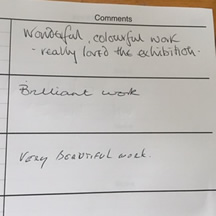 Comments
Wonderful, colourful work
- really loved the exhibition.
Brilliant work
Very beautiful work.